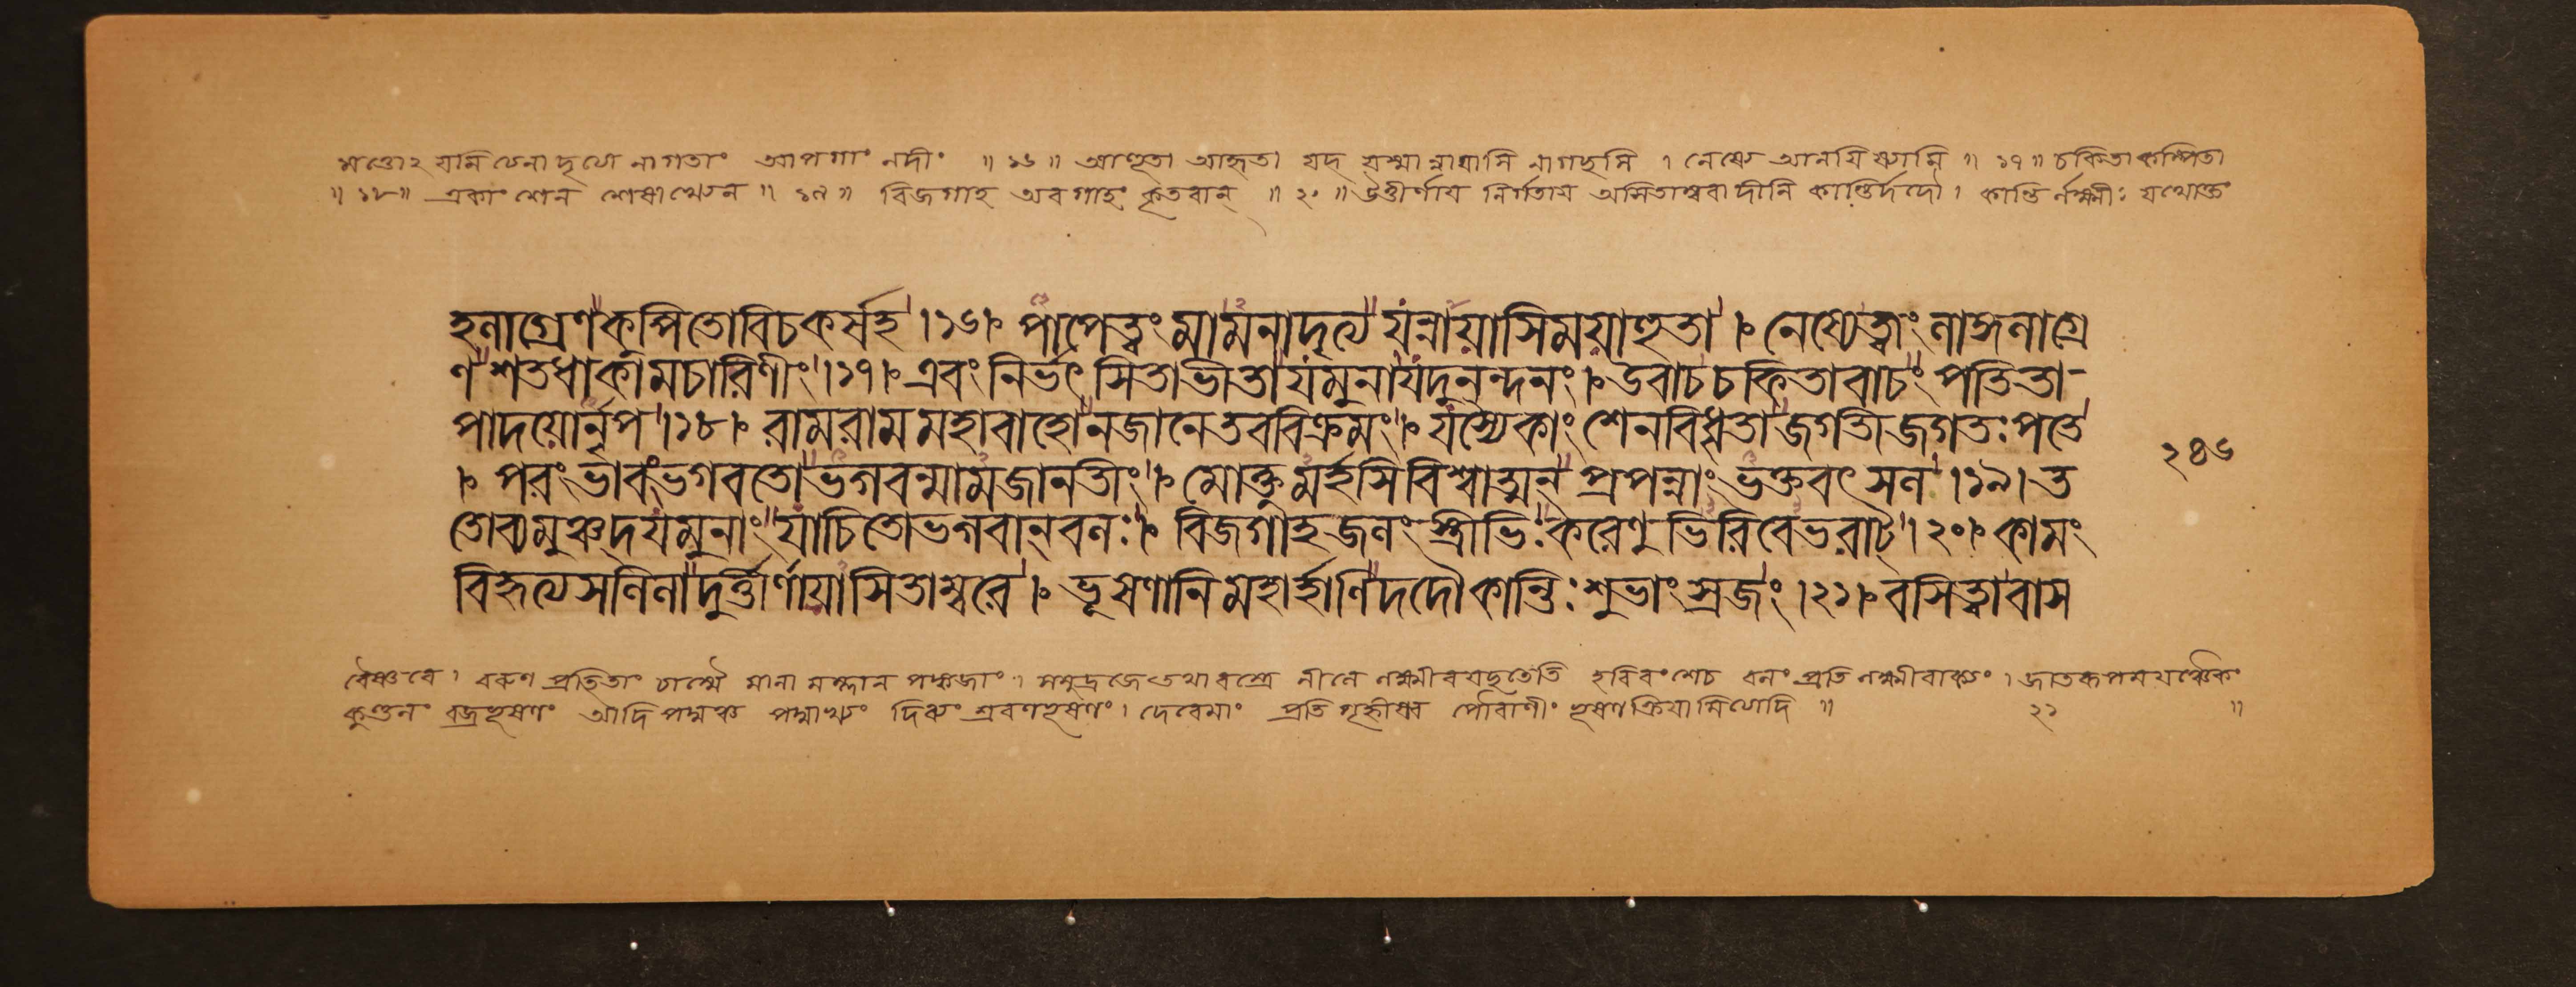 মত্তোঽয়মিত্যেনাদৃত্যো নাগতাং আপগাং নদীং ॥ ১৬ ॥ আহূতা আহূতা যদ্ যস্মান্নায়াসি নাগচ্ছসি । নেষ্যে আনয়িষ্যামি ॥ ১৭ ॥ চকিতা কম্পিতা
॥ ১৮ ॥ একাংশেন শেষাখ্যেন ॥ ১৯ ॥ বিজগাহ অবগাহং কৃতবান্ ॥ ২০ ॥ উত্তীর্ণায় নির্গতায় অসিতাম্বরাদীনি কান্তির্দদৌ । কান্তির্লক্ষ্মীঃ যথোক্তং
হলাগ্রেণ কুপিতো বিচকর্ষহ ।১৬। পাপেত্বং মামনাদৃত্য যন্নায়াসি ময়াহুতা । নেষ্যেত্বাং লাঙ্গলাগ্রে
ণ শতধা কামচারিণীং ।১৭। এবং নির্ভৎসিতা ভীতা যমুনা যদুনন্দনং । উবাচ চকিতা বাচং পতিতা-
পাদয়োর্নৃপ ।১৮। রামরাম মহাবাহো নজানে তব বিক্রমং । যস্যৈকাংশেন বিধৃতা জগতী জগতঃ পতে
। পরং ভাবং ভগবতো ভগবন্মামজানতীং । মোক্তুমর্হসি বিশ্বাত্মন্ প্রপন্নাং ভক্তবৎসল ।১৯। ত
তো ব্যমুঞ্চদ্ যমুনাং যাচিতো ভগবান্ বলঃ । বিজগাহ জলং স্ত্রীভিঃ করেণুভিরিবেভরাট্ ।২০। কামং
বিহৃত্য সলিলাদুত্তীর্ণায়াসিতাম্বরে । ভূষণানি মহার্হাণি দদৌ কান্তিঃ শুভাং স্রজং ।২১। বসিত্বা বাস
২৪৬
বৈষ্ণবে । বরুণ প্রহিতাং চাস্মৈ মালামম্লান পঙ্কজাং । সমুদ্রজে তথা বস্ত্রে নীলে লক্ষ্মীরযচ্ছতেতি হরিবংশেচ বলং প্রতি লক্ষ্মীবাক্যং । জাতরূপময়ঞ্চৈকং
কুণ্ডলং বজ্রভূষণং আদি পদ্মঞ্চ পদ্মাখ্যং দিব্যং শ্রবণভূষণং । দেবেমাং প্রতিগৃহ্ণীষ্ব পৌরাণীং ভূষণক্রিয়ামিত্যাদি ॥ ২১ ॥